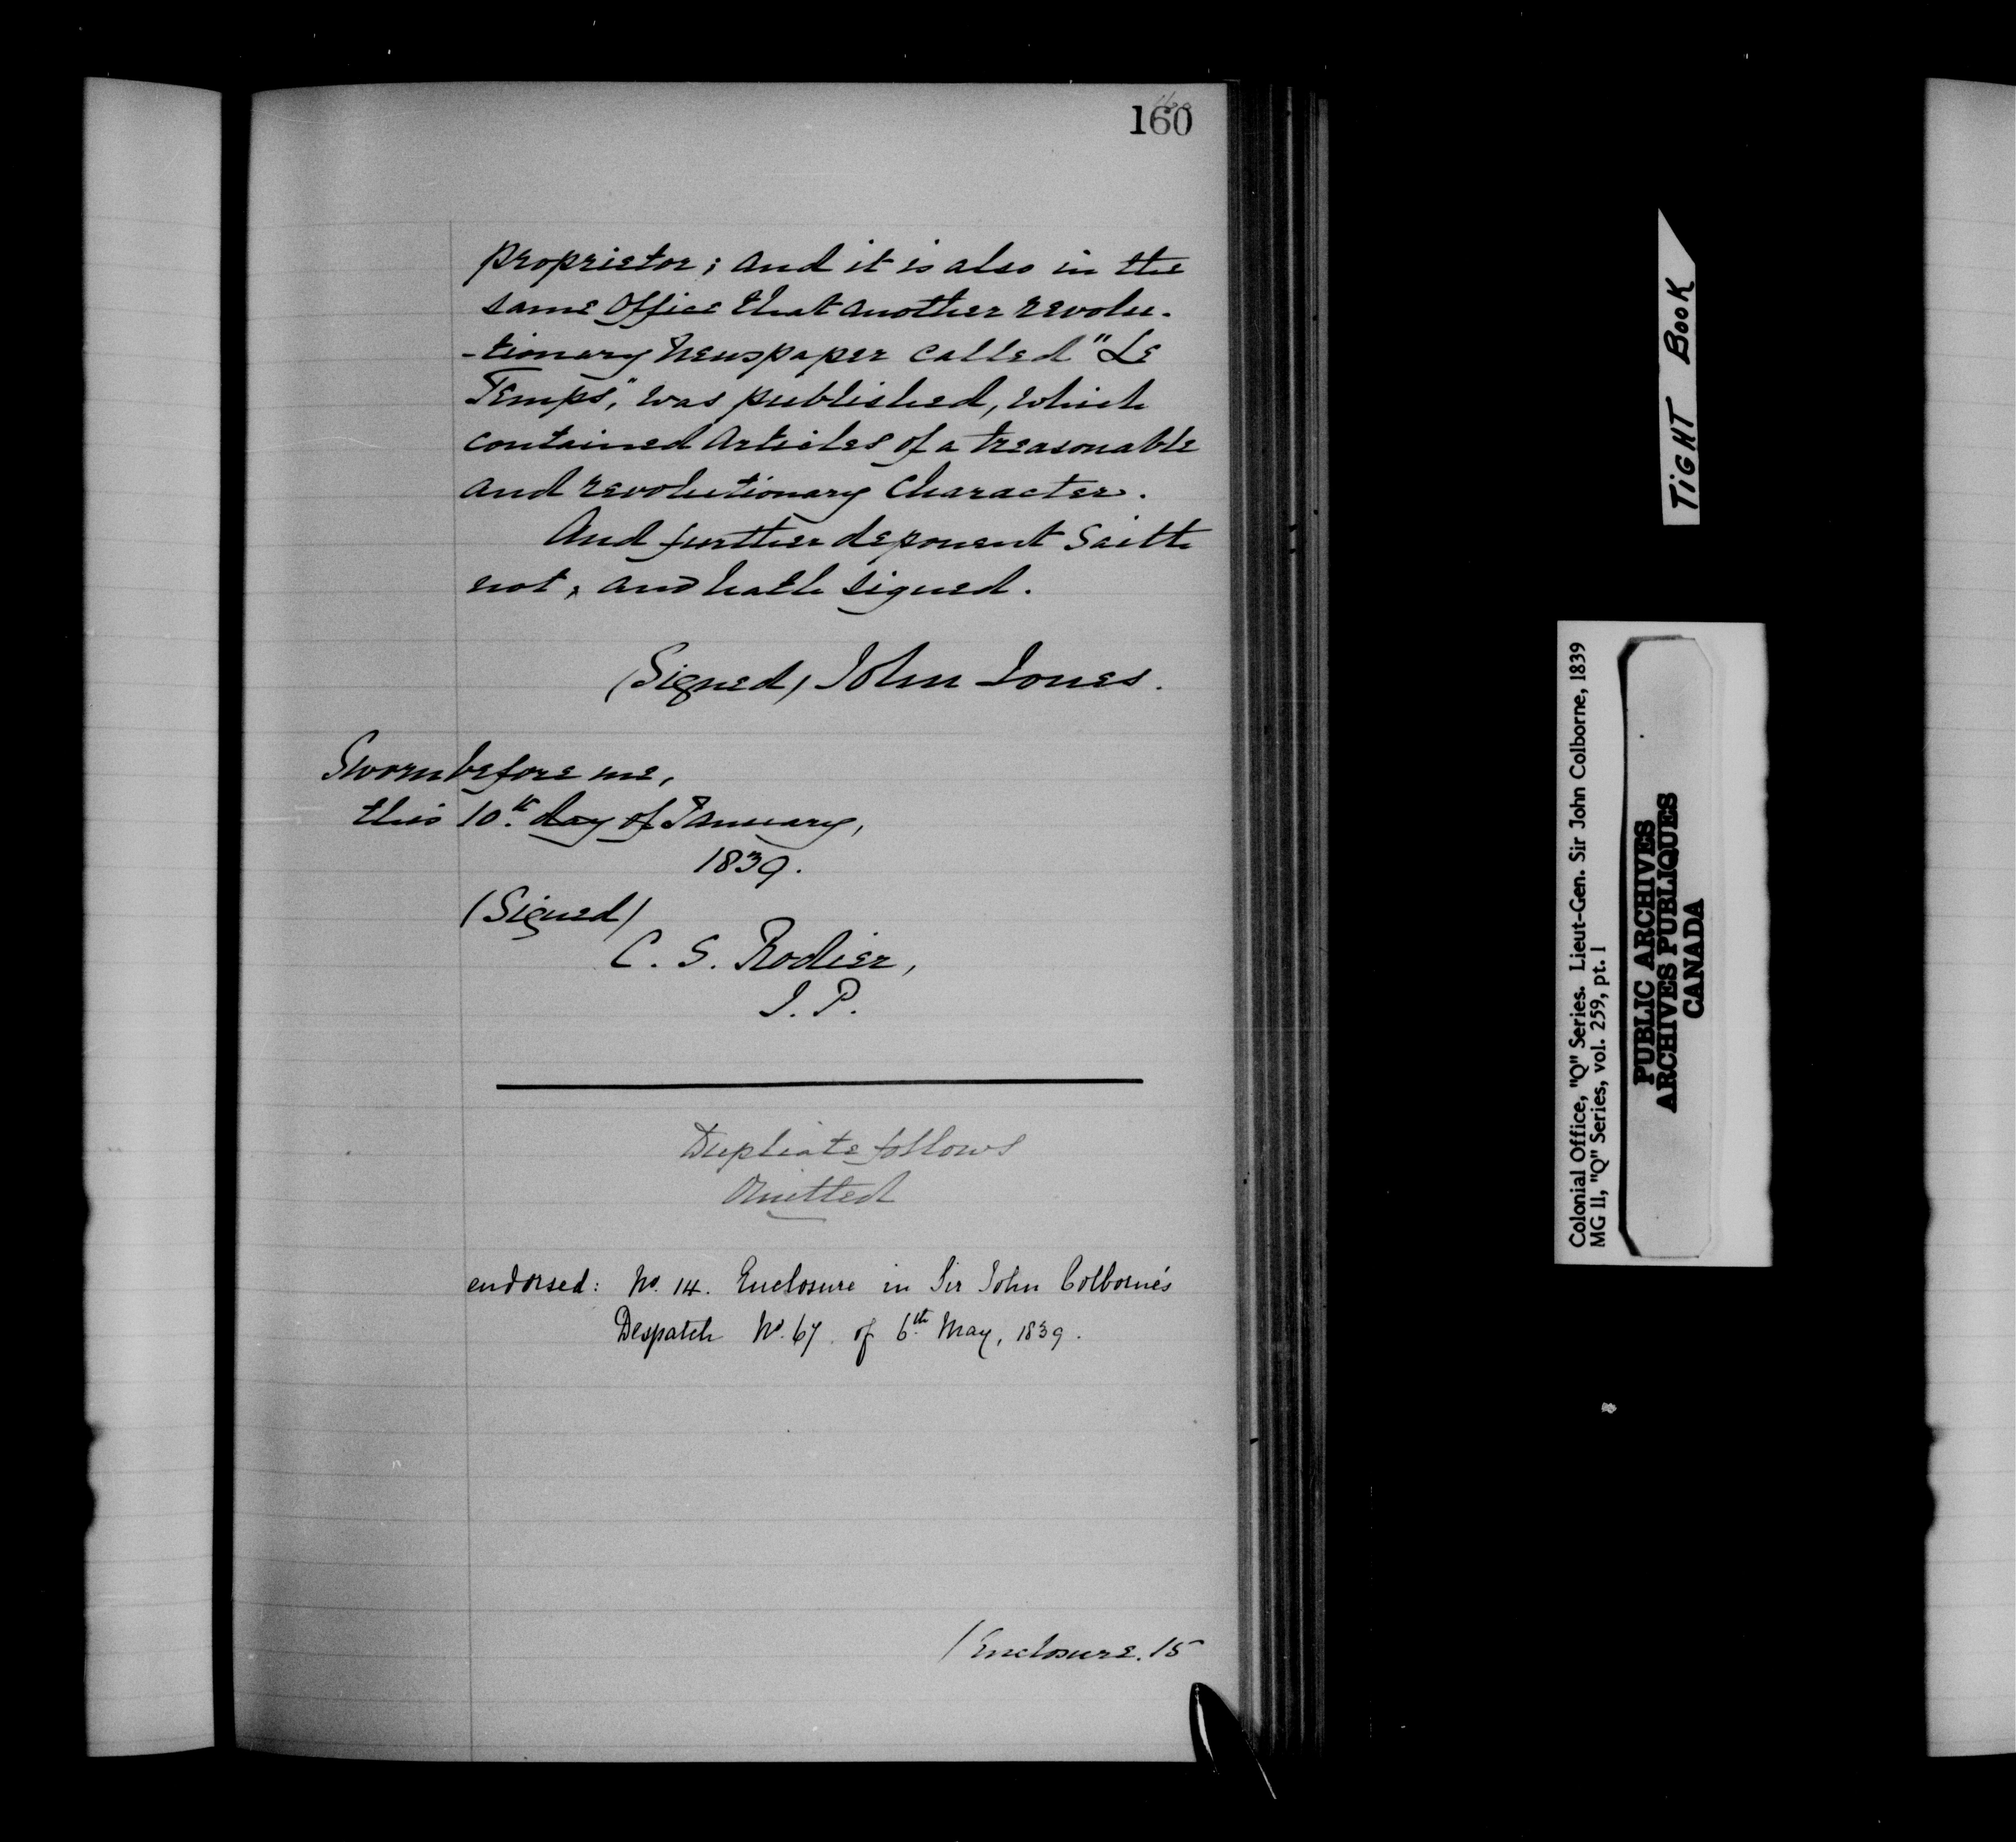 160
proprietor; and it is also in the
same Office that another revolu-
-tionary Newspaper called "Le
Temps," was published, which
contained Articles of a treasonable
and revolutionary Character.
And further deponent Saith
not, and hath signed.
(Signed) John Jones.
Sworn before me,
this 10th day of January,
1839.
(Signed)
C. S. Rodier,
J. P.
Duplicate follows
Omitted
endorsed: No. 14. Enclosure in Sir John Colborne's
Despatch No. 67. of 6th May, 1839.
/Enclosure. 15
TIGHT BOOK
Colonial Office, "Q" Series. Lieut-Gen. Sir John Colborne, 1839
MG 11, "Q" Series, vol. 259, pt. 1
PUBLIC ARCHIVES
ARCHIVES PUBLIQUES
CANADA